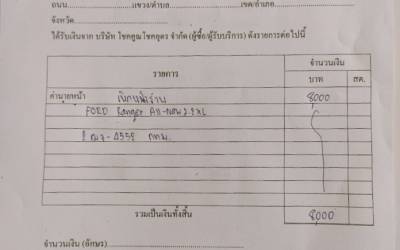 ถนน..........แขวง/ตำบล..........เขต/อำเภอ..........
จังหวัด..........
ได้รับเงินจาก บริษัท โชคคูณโชคอุดร จำกัด (ผู้ซื้อ/ผู้รับบริการ) ดังรายการต่อไปนี้
รายการ จำนวนเงิน
บาท สต.
ค่านายหน้า 8,000
FORD Ranger All-New 2.2 XL
4555 กทม.
รวมเป็นเงินทั้งสิ้น 8,000
จำนวนเงิน (อักษร)..........